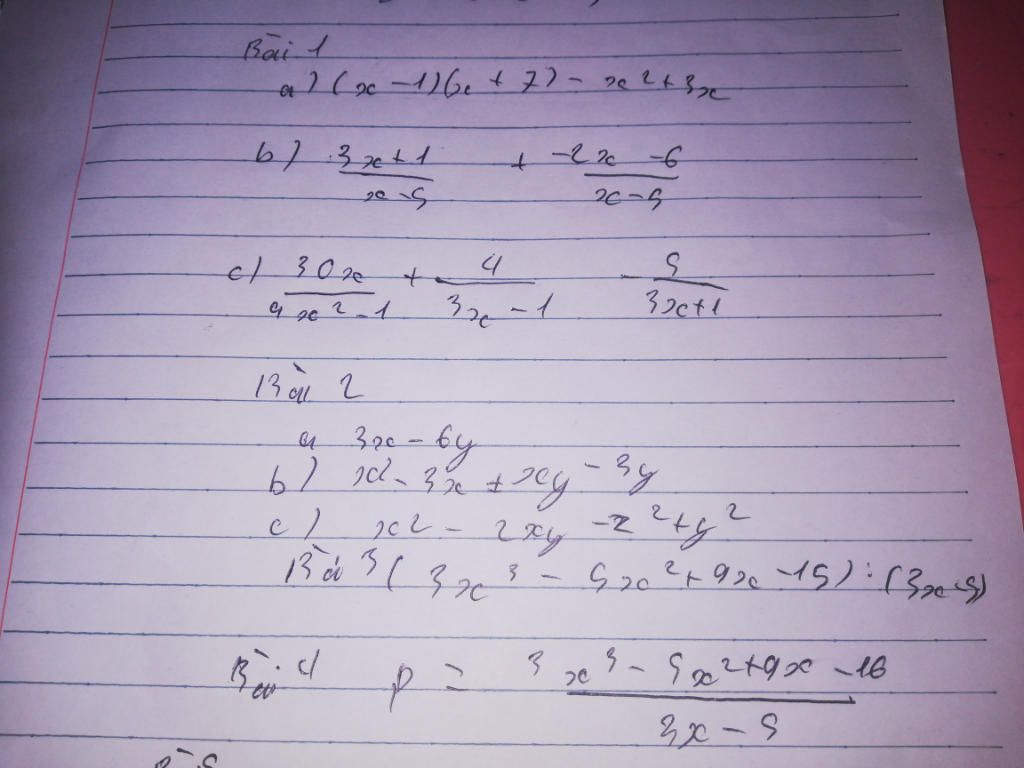 Bài 1
a) (x - 1)(x + 7) - x² + 3x
b) (3x + 1)/(x - 5) + (-2x - 6)/(x - 5)
c) 30x/(9x² - 1) + 4/(3x - 1) - 5/(3x + 1)
Bài 2
a 3x - 6y
b) x² - 3x + xy - 3y
c) x² - 2xy - z² + y²
Bài 3 (3x³ - 5x² + 9x - 15) : (3x - 5)
Bài 4 P = (3x³ - 5x² + 9x - 16)/(3x - 5)